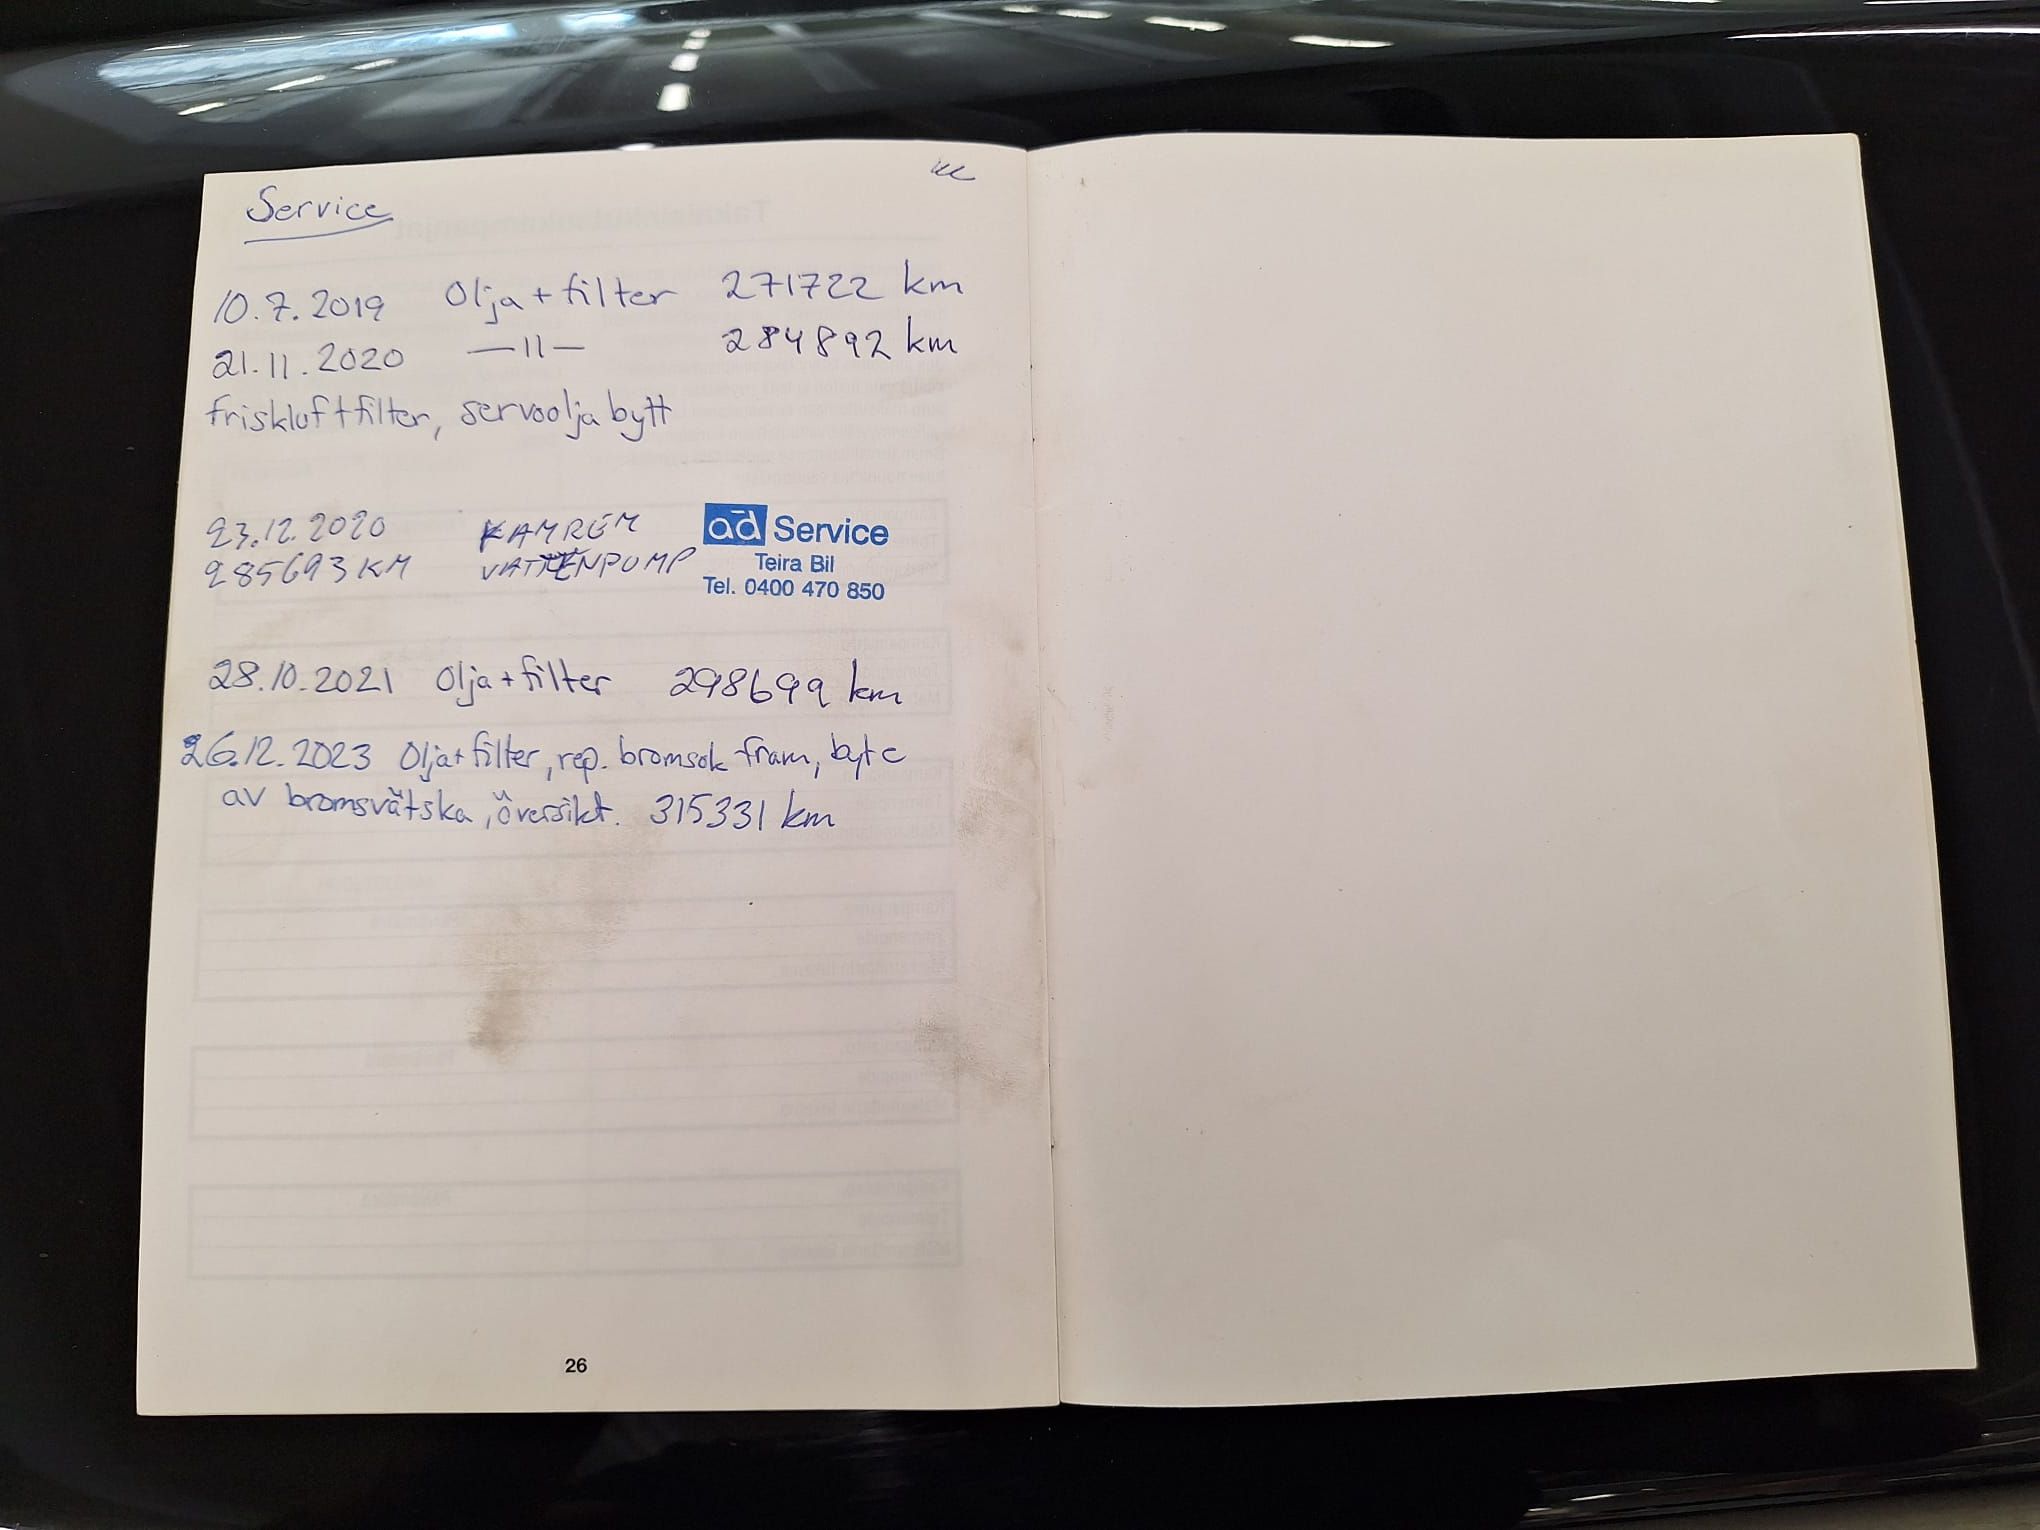 Service
10.7.2019 Olja + filter 271722 km
21.11.2020 —||— 284892 km
friskluftfilter, servoolja bytt
23.12.2020 KAMREM
285693 KM VATTENPUMP
ad Service
Teira Bil
Tel. 0400 470 850
28.10.2021 Olja + filter 298699 km
26.12.2023 Olja + filter, rep. bromsok fram, byte
av bromsvätska, översikt. 315331 km
26